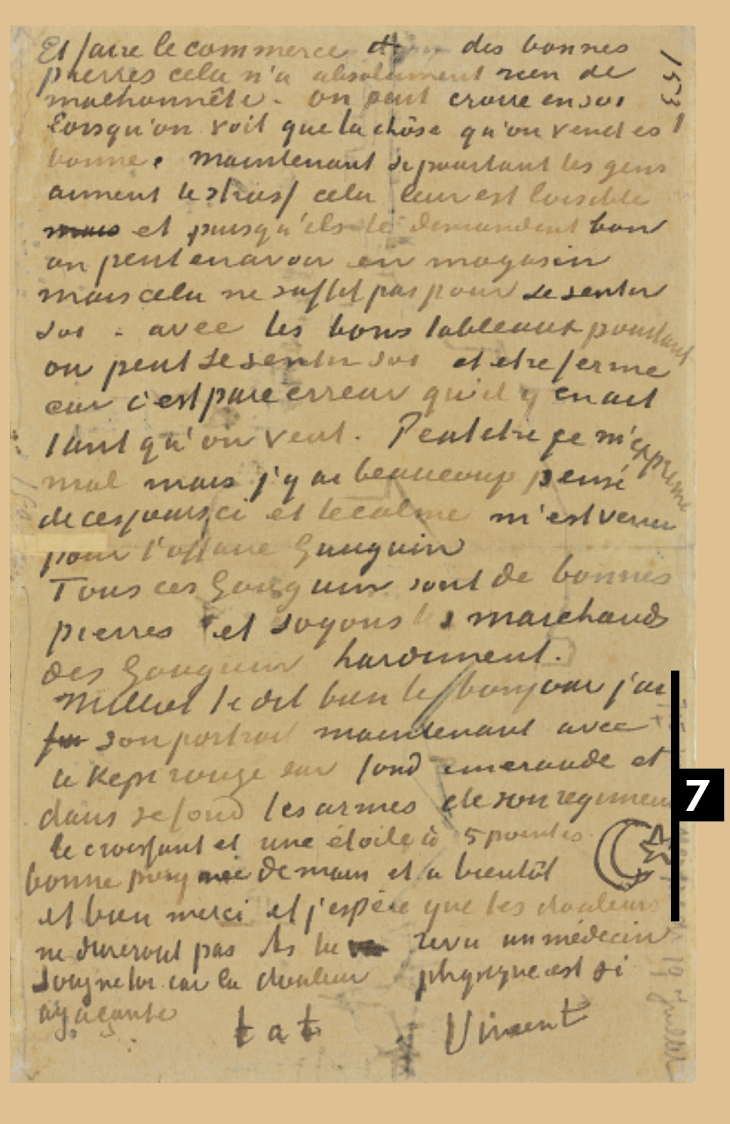 Et faire le commerce des bonnes
pierres cela n'a absolument rien de
malhonnête. on peut croire en soi
lorsqu'on voit que la chôse qu'on vend est
bonne. maintenant si pourtant les gens
aiment le strass cela leur est loisible
mais et puisqu'ils le demandent bon
on peut en avoir en magasin
mais cela ne suffit pas pour se sentir
soi - avec les bons tableaux pourtant
on peut se sentir soi et etre ferme
car c'est pure erreur qu'il y en ait
tant qu'on veut. Peutetre je m'exprime
mal mais j'y ai beaucoup pensé
de ces jours ci et le calme m'est venu
pour l'affaire Gauguin
Tous ces Gauguin sont de bonnes
pierres et soyons les marchands
des Gauguin hardiment.
Milliet te dit bien le bonjour j'ai
son portrait maintenant avec
le Kepi rouge sur fond emeraude et
dans ce fond les armes de son regiment
le croissant et une étoile à 5 pointes
bonne poignée de main et a bientôt
et bien merci et j'espère que les douleurs
ne dureront pas As tu revu un médecin
soigne toi car la douleur physique est si
agaçante
t. à t. Vincent
153
7